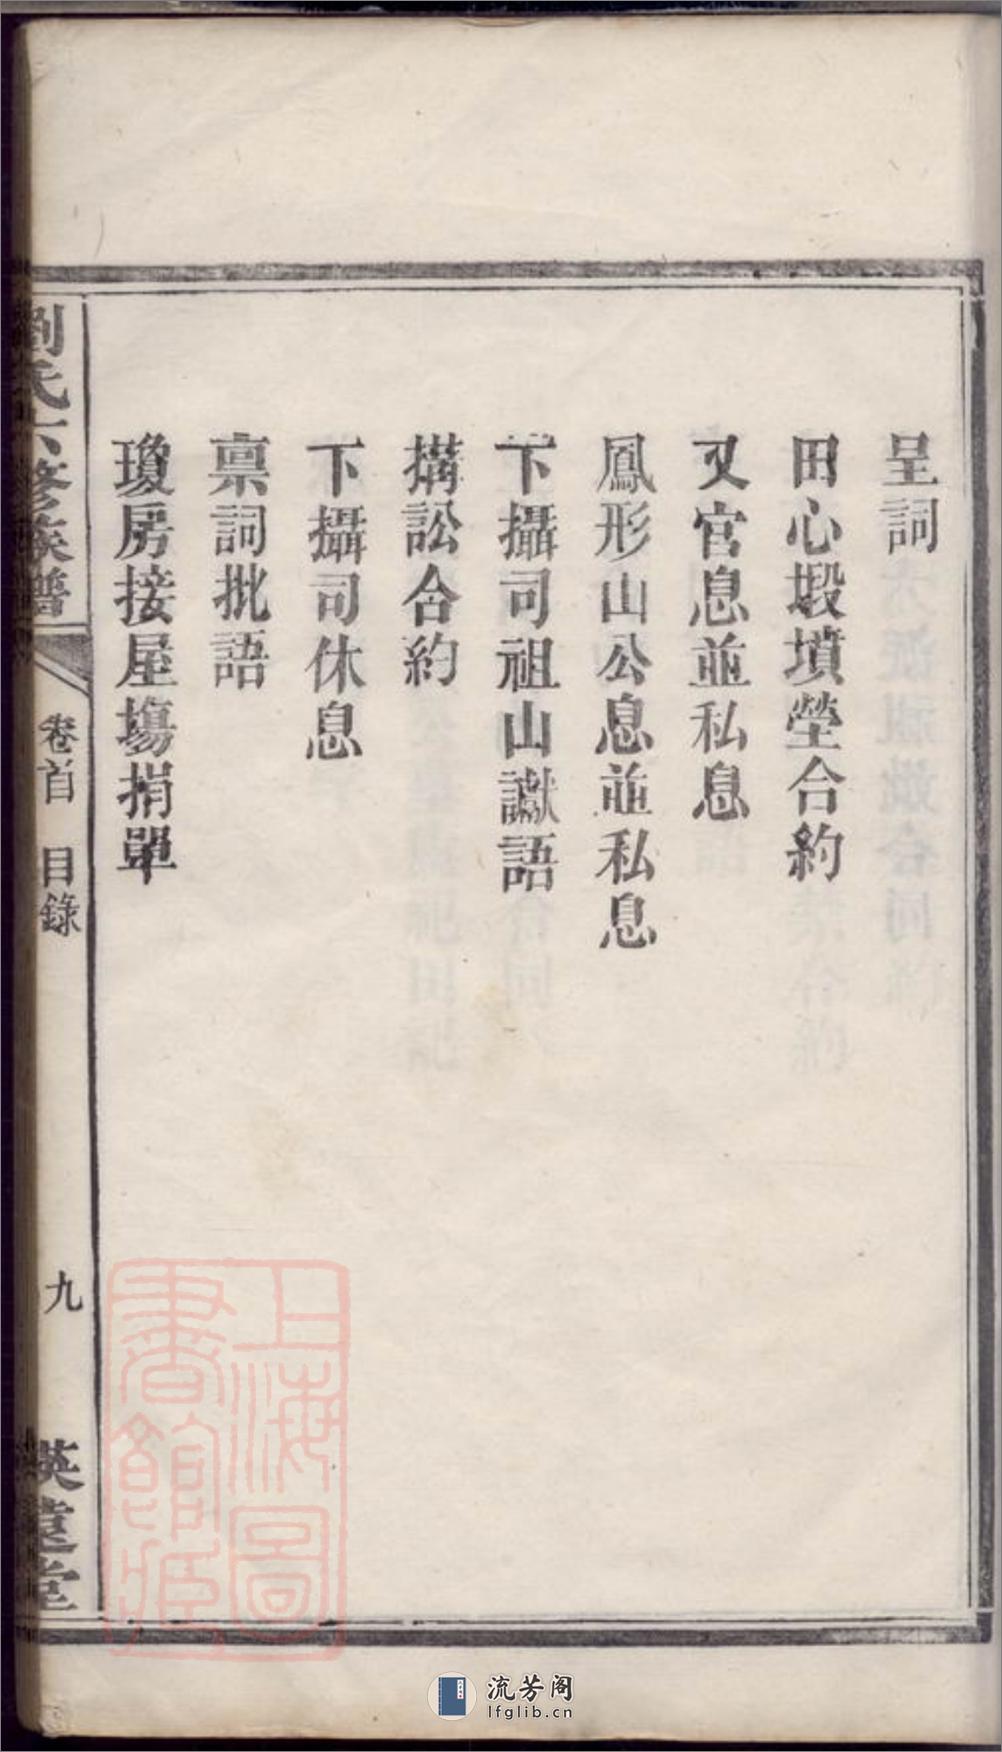 呈詞
田心塅墳塋合約
又官息並私息
鳳形山公息並私息
下攝司祖山讞語
搆訟合約
下攝司休息
禀詞批語
瓊房接屋塲捐單
劉氏六修族譜
卷首 目錄
九
遠堂
上海圖
書館藏
流芳阁
lfglib.cn